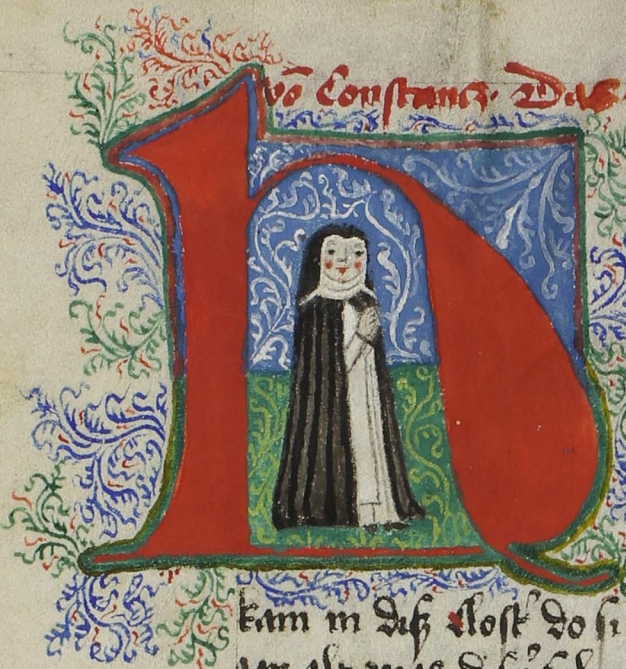 vō Constancz. Das
h
kam in diß Clost˜ do si